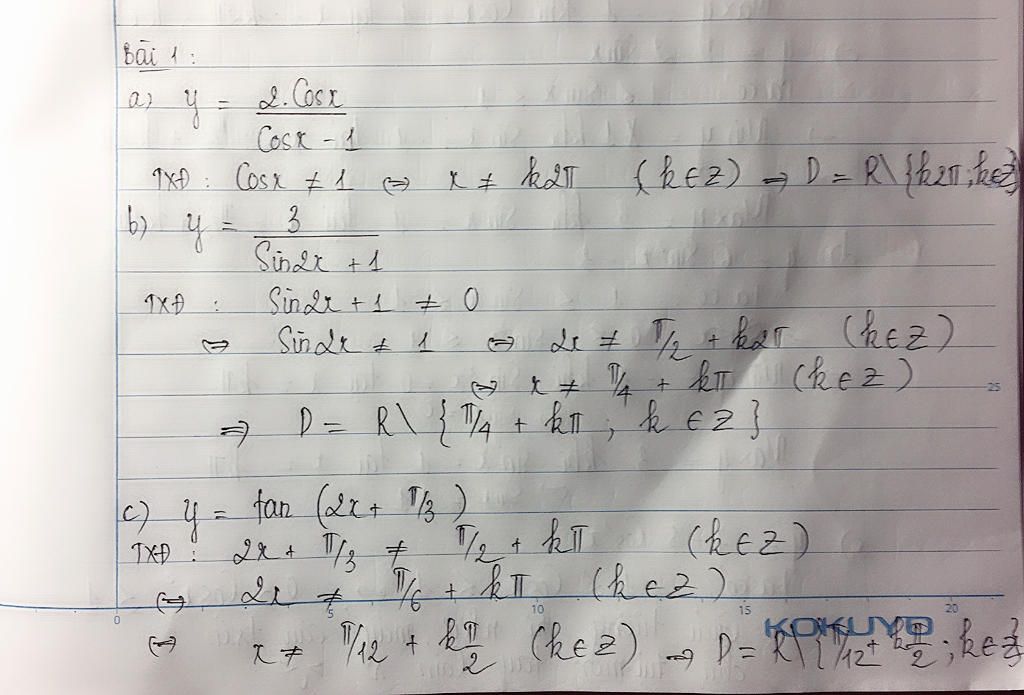 Bài 1:
a) y = 2.Cosx / Cosx - 1
TXĐ: Cosx ≠ 1 ⇔ x ≠ k2π (k ∈ Z) ⇒ D = R\{k2π; k∈Z}
b) y = 3 / Sin2x + 1
TXĐ: Sin2x + 1 ≠ 0
⇔ Sin2x ≠ 1 ⇔ 2x ≠ π/2 + k2π (k ∈ Z)
⇔ x ≠ π/4 + kπ (k ∈ Z)
25
⇒ D = R\{π/4 + kπ; k ∈ Z}
c) y = tan (2x + π/3)
TXĐ: 2x + π/3 ≠ π/2 + kπ (k ∈ Z)
⇔ 2x ≠ π/6 + kπ (k ∈ Z)
0 5 10 15 20
KOKUYO
⇔ x ≠ π/12 + kπ/2 (k ∈ Z) ⇒ D = R\{π/12 + kπ/2; k∈Z}